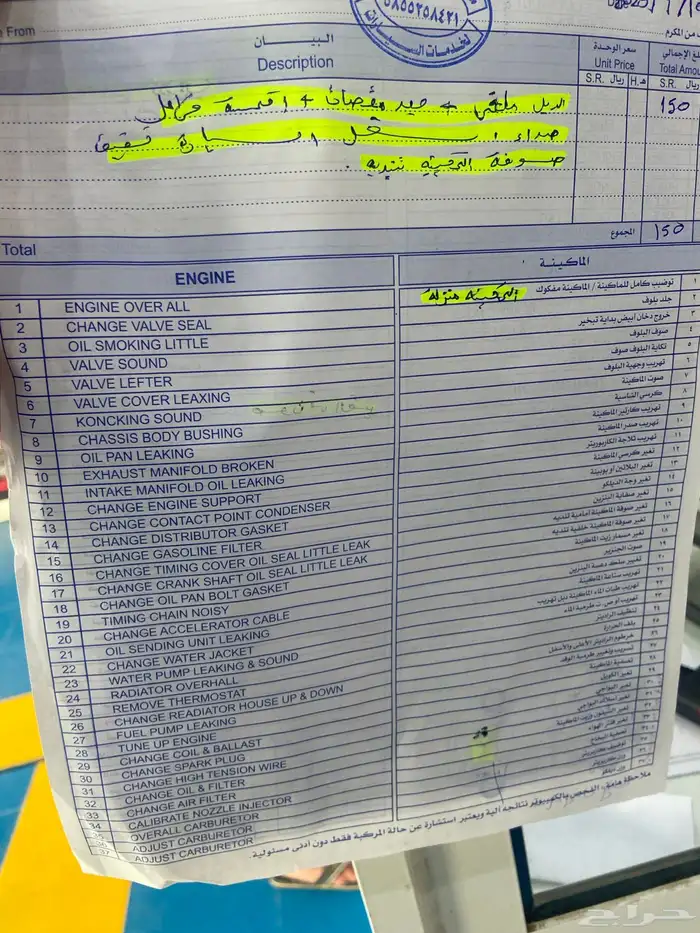 ٠٥٨٥٥٢٥٨٤٢١
لخدمات السيارات
e From
من المكرم
البـيـــان
Description
سعر الوحدة
Unit Price
S.R. ريال
H. هـ
المبلغ الإجمالي
Total Amou
S.R. ريال
150
صوفة المكينة تنديه .
Total
المجموع
150
ENGINE
الماكينـة
1 ENGINE OVER ALL
توضيب كامل للماكينة / الماكينة مفكوك ١
المكينة منزله
2 CHANGE VALVE SEAL
جلد بلوف
3 OIL SMOKING LITTLE
خروج دخان أبيض بداية تبخير ٣
4 VALVE SOUND
صوف البلوف ٤
5 VALVE LEFTER
تكاية البلوف صوف ٥
6 VALVE COVER LEAXING
تهريب وجهية البلوف ٦
7 KONCKING SOUND
صوت الماكينة ٧
8 CHASSIS BODY BUSHING
كرسي التناسية ٨
9 OIL PAN LEAKING
تهريب كارتير الماكينة ٩
10 EXHAUST MANIFOLD BROKEN
تهريب صدر الماكينة ١٠
11 INTAKE MANIFOLD OIL LEAKING
تهريب ثلاجة الكاربوريتر ١١
12 CHANGE ENGINE SUPPORT
تغير كرسي الماكينة ١٢
13 CHANGE CONTACT POINT CONDENSER
تغير البلاتين أو بوبينة ١٣
14 CHANGE DISTRIBUTOR GASKET
تغير وجة الديلكو ١٤
15 CHANGE GASOLINE FILTER
تغير صفاية البنزين ١٥
16 CHANGE TIMING COVER OIL SEAL LITTLE LEAK
تغير صوفة الماكينة أمامية تنديه ١٦
17 CHANGE CRANK SHAFT OIL SEAL LITTLE LEAK
تغير صوفة الماكينة خلفية تنديه ١٧
18 CHANGE OIL PAN BOLT GASKET
تغير مسمار زيت الماكينة ١٨
19 TIMING CHAIN NOISY
صوت الجنزير ١٩
20 CHANGE ACCELERATOR CABLE
تغيير سلك دعسة البنزين ٢٠
21 OIL SENDING UNIT LEAKING
تهريب ساعة الماكينة ٢١
22 CHANGE WATER JACKET
تهريب طبات الماء الماكينة دبل تهريب ٢٢
23 WATER PUMP LEAKING & SOUND
تهريب أو ص.ت طرمبة الماء ٢٣
24 RADIATOR OVERHALL
تنظيف الراديتر ٢٤
25 REMOVE THERMOSTAT
بلف الحرارة ٢٥
26 CHANGE READIATOR HOUSE UP & DOWN
خرطوم الراديتر الأعلى والأسفل ٢٦
27 FUEL PUMP LEAKING
تسريب وتغيير طرمبة الوقد ٢٧
28 TUNE UP ENGINE
تصفية الماكينة ٢٨
29 CHANGE COIL & BALLAST
تغير الكويل ٢٩
30 CHANGE SPARK PLUG
تغير البواجي ٣٠
31 CHANGE HIGH TENSION WIRE
تغير أسلاك البواجي
32 CHANGE OIL & FILTER
33 CHANGE AIR FILTER
تغير فلتر الهواء
34 CALIBRATE NOZZLE INJECTOR
تصفية البخاخ
35 OVERALL CARBURETOR
توضيب كاربريتر
36 ADJUST CARBURETOR
وزن كاربريتر
37 ADJUST CARBURETOR
ملاحظة هامة: الفحص بالكمبيوتر نتائجه آلية ويعتبر استشارة عن حالة المركبة فقط دون أدنى مسئولية.
حراج